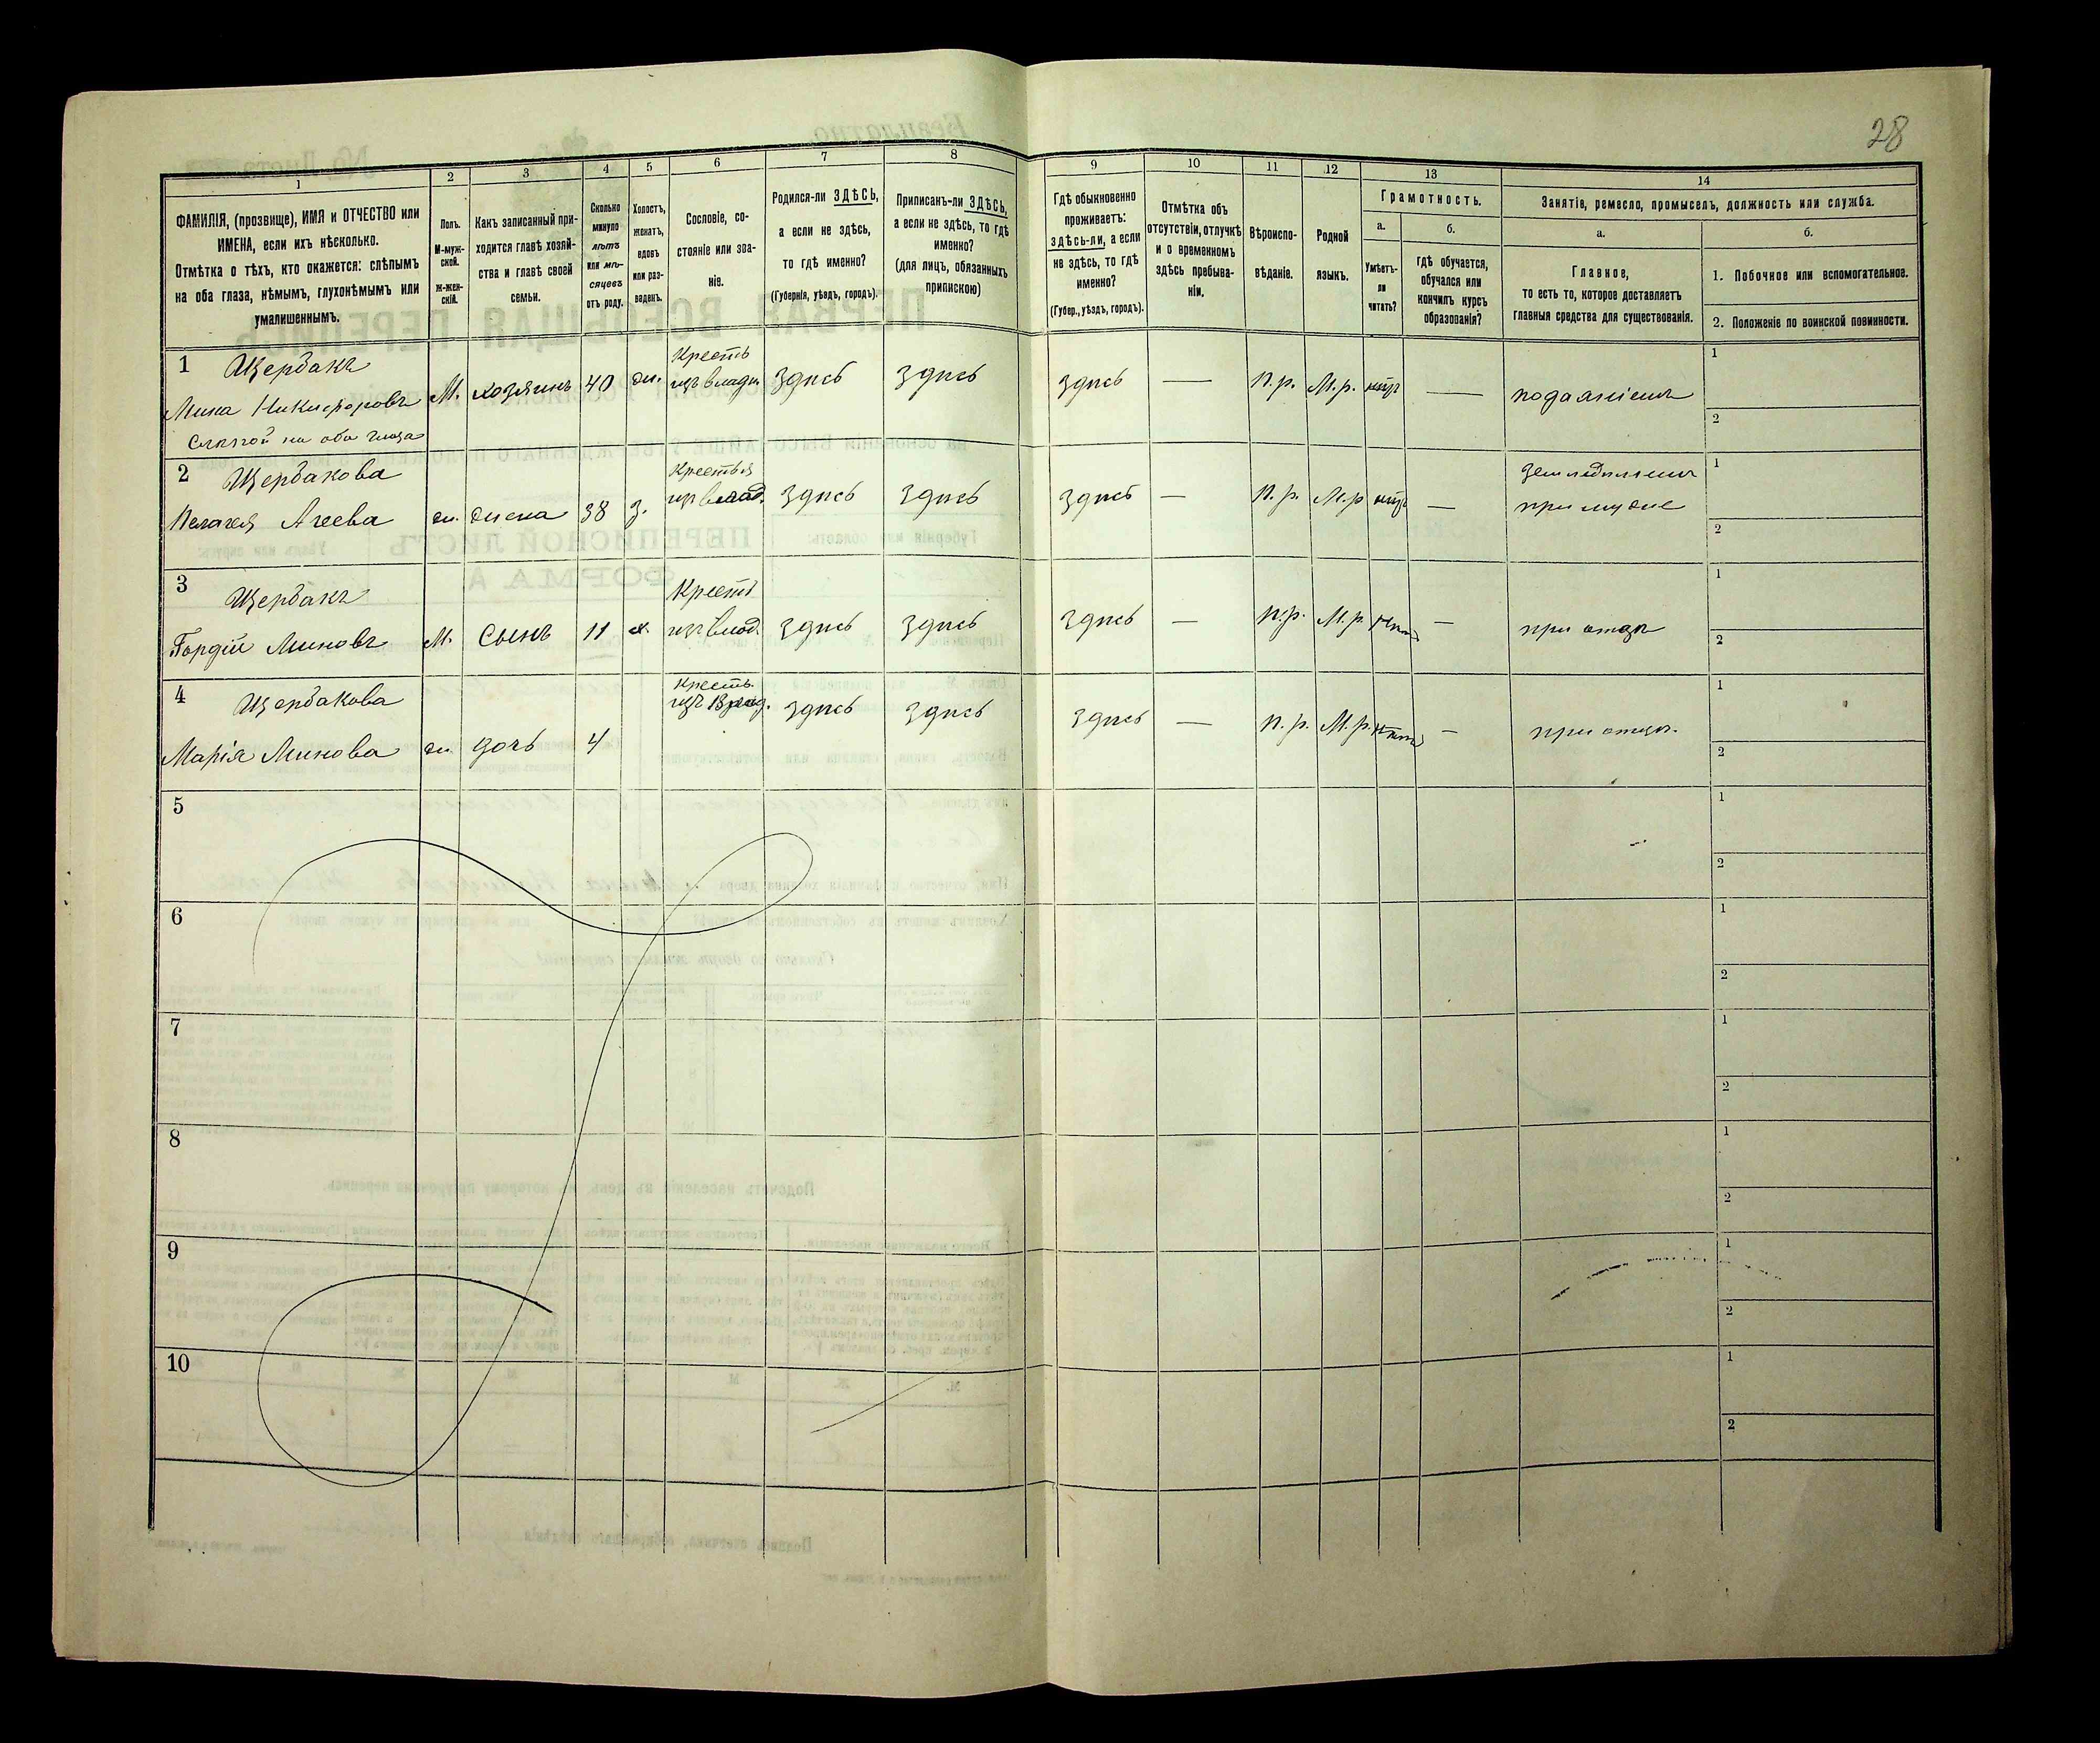 28
1
2
3
4
5
6
7
8
9
10
11
12
13
14
ФАМИЛІЯ, (прозвище), ИМЯ и ОТЧЕСТВО или
ИМЕНА, если ихъ нѣсколько.
Отмѣтка о тѣхъ, кто окажется: слѣпымъ
на оба глаза, нѣмымъ, глухонѣмымъ или
умалишеннымъ.
Полъ.
М-муж-
ской.
ж-жен-
скій.
Какъ записанный при-
ходится главѣ хозяй-
ства и главѣ своей
семьи.
Сколько
минуло
лѣтъ
или мѣ-
сяцевъ
отъ роду.
Холостъ,
женатъ,
вдовъ
или раз-
веденъ.
Сословіе, со-
стояніе или зва-
ніе.
Родился-ли ЗДѢСЬ,
а если не здѣсь,
то гдѣ именно?
(Губернія, уѣздъ, городъ).
Приписанъ-ли ЗДѢСЬ,
а если не здѣсь, то гдѣ
именно?
(для лицъ, обязанныхъ
припискою)
Гдѣ обыкновенно
проживаетъ:
здѣсь-ли, а если
не здѣсь, то гдѣ
именно?
(Губер., уѣздъ, городъ).
Отмѣтка объ
отсутствіи, отлучкѣ
и о временномъ
здѣсь пребыва-
ніи.
Вѣроиспо-
вѣданіе.
Родной
языкъ.
Грамотность.
а.
Умѣетъ-
ли
читать?
б.
гдѣ обучается,
обучался или
кончилъ курсъ
образованія?
Занятіе, ремесло, промыселъ, должность или служба.
а.
Главное,
то есть то, которое доставляетъ
главныя средства для существованія.
б.
1. Побочное или вспомогательное.
2. Положеніе по воинской повинности.
1 Щербакъ
Мина Никифоровъ
Слѣпой на оба глаза
М.
хозяинъ
40
ж.
Кресть
изъ владѣ
здѣсь
здѣсь
здѣсь
—
п.р.
М.р.
нѣтъ
—
подаяніемъ
1
2
2 Щербакова
Пелагея Агеева
ж.
жена
38
з.
Крестья
изъ влад.
здѣсь
здѣсь
здѣсь
—
п.р.
М.р
нѣтъ
—
земледѣліемъ
при мужѣ
1
2
3 Щербакъ
Гордій Миновъ
М.
Сынъ
11
х.
Крест
изъ влад.
здѣсь
здѣсь
здѣсь
—
п.р.
М.р
нѣтъ
—
при отцѣ
1
2
4 Щербакова
Марія Минова
ж.
дочь
4
Кресть.
изъ Влад.
здѣсь
здѣсь
здѣсь
—
п.р.
М.р.
нѣтъ
—
при отцѣ.
1
2
5
1
2
6
1
2
7
1
2
8
1
2
9
1
2
10
1
2